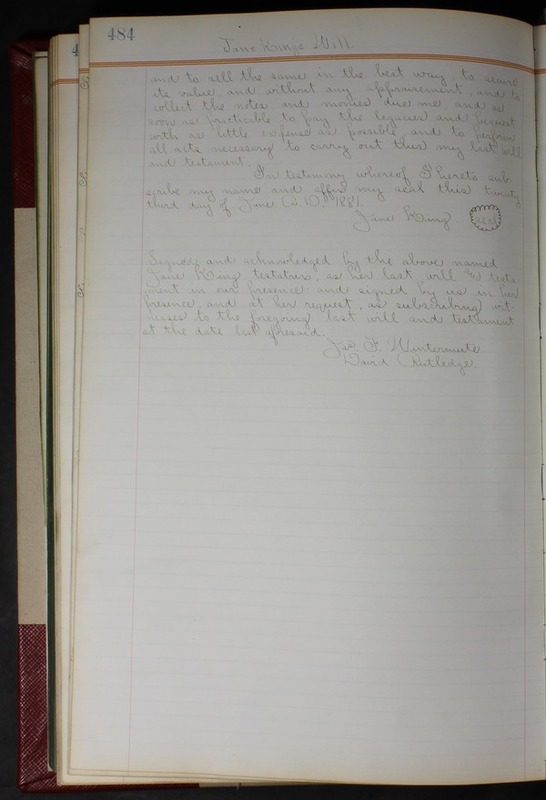 484
Jane King's Will.
and to sell the same in the best way to secure
its value and without any appraisement, and to
collect the notes and monies due me and as
soon as practicable to pay the legacies and bequest
with as little expense as possible, and to perform
all acts necessary to carry out this my last will
and testament.
In testimony whereof I hereto sub-
scribe my name and affix my seal this twenty
third day of June A.D. 1881.
Jane King seal
Signed and acknowledged by the above named
Jane King testatrix, as her last will and testa-
ment in our presence and signed by us in her
presence, and at her request, as subscribing wit-
nesses to the foregoing last will and testament
at the date last aforesaid.
Jas. F. Wintermute
David Rutledge.